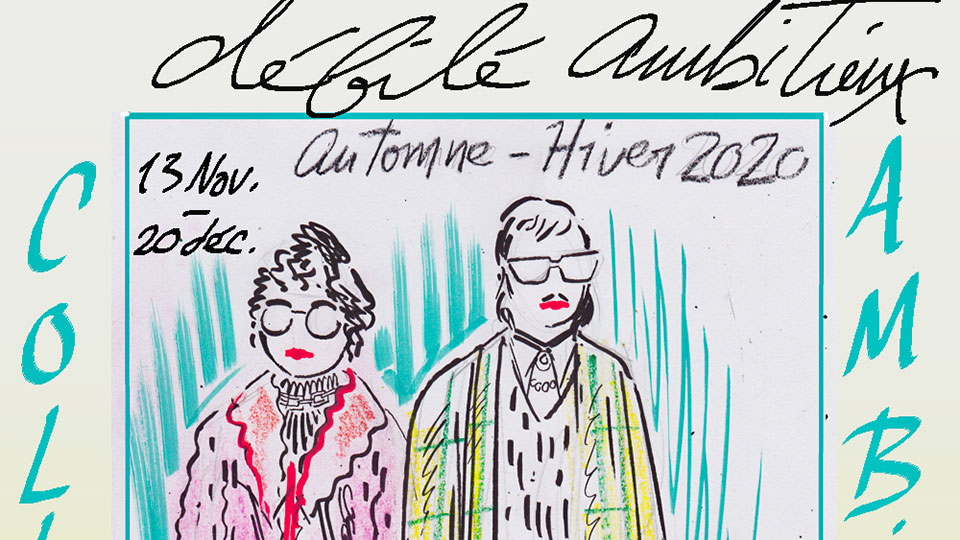 défilé ambitieux
Automne - Hiver 2020
13 Nov.
-
20 déc.
COL
AMB.